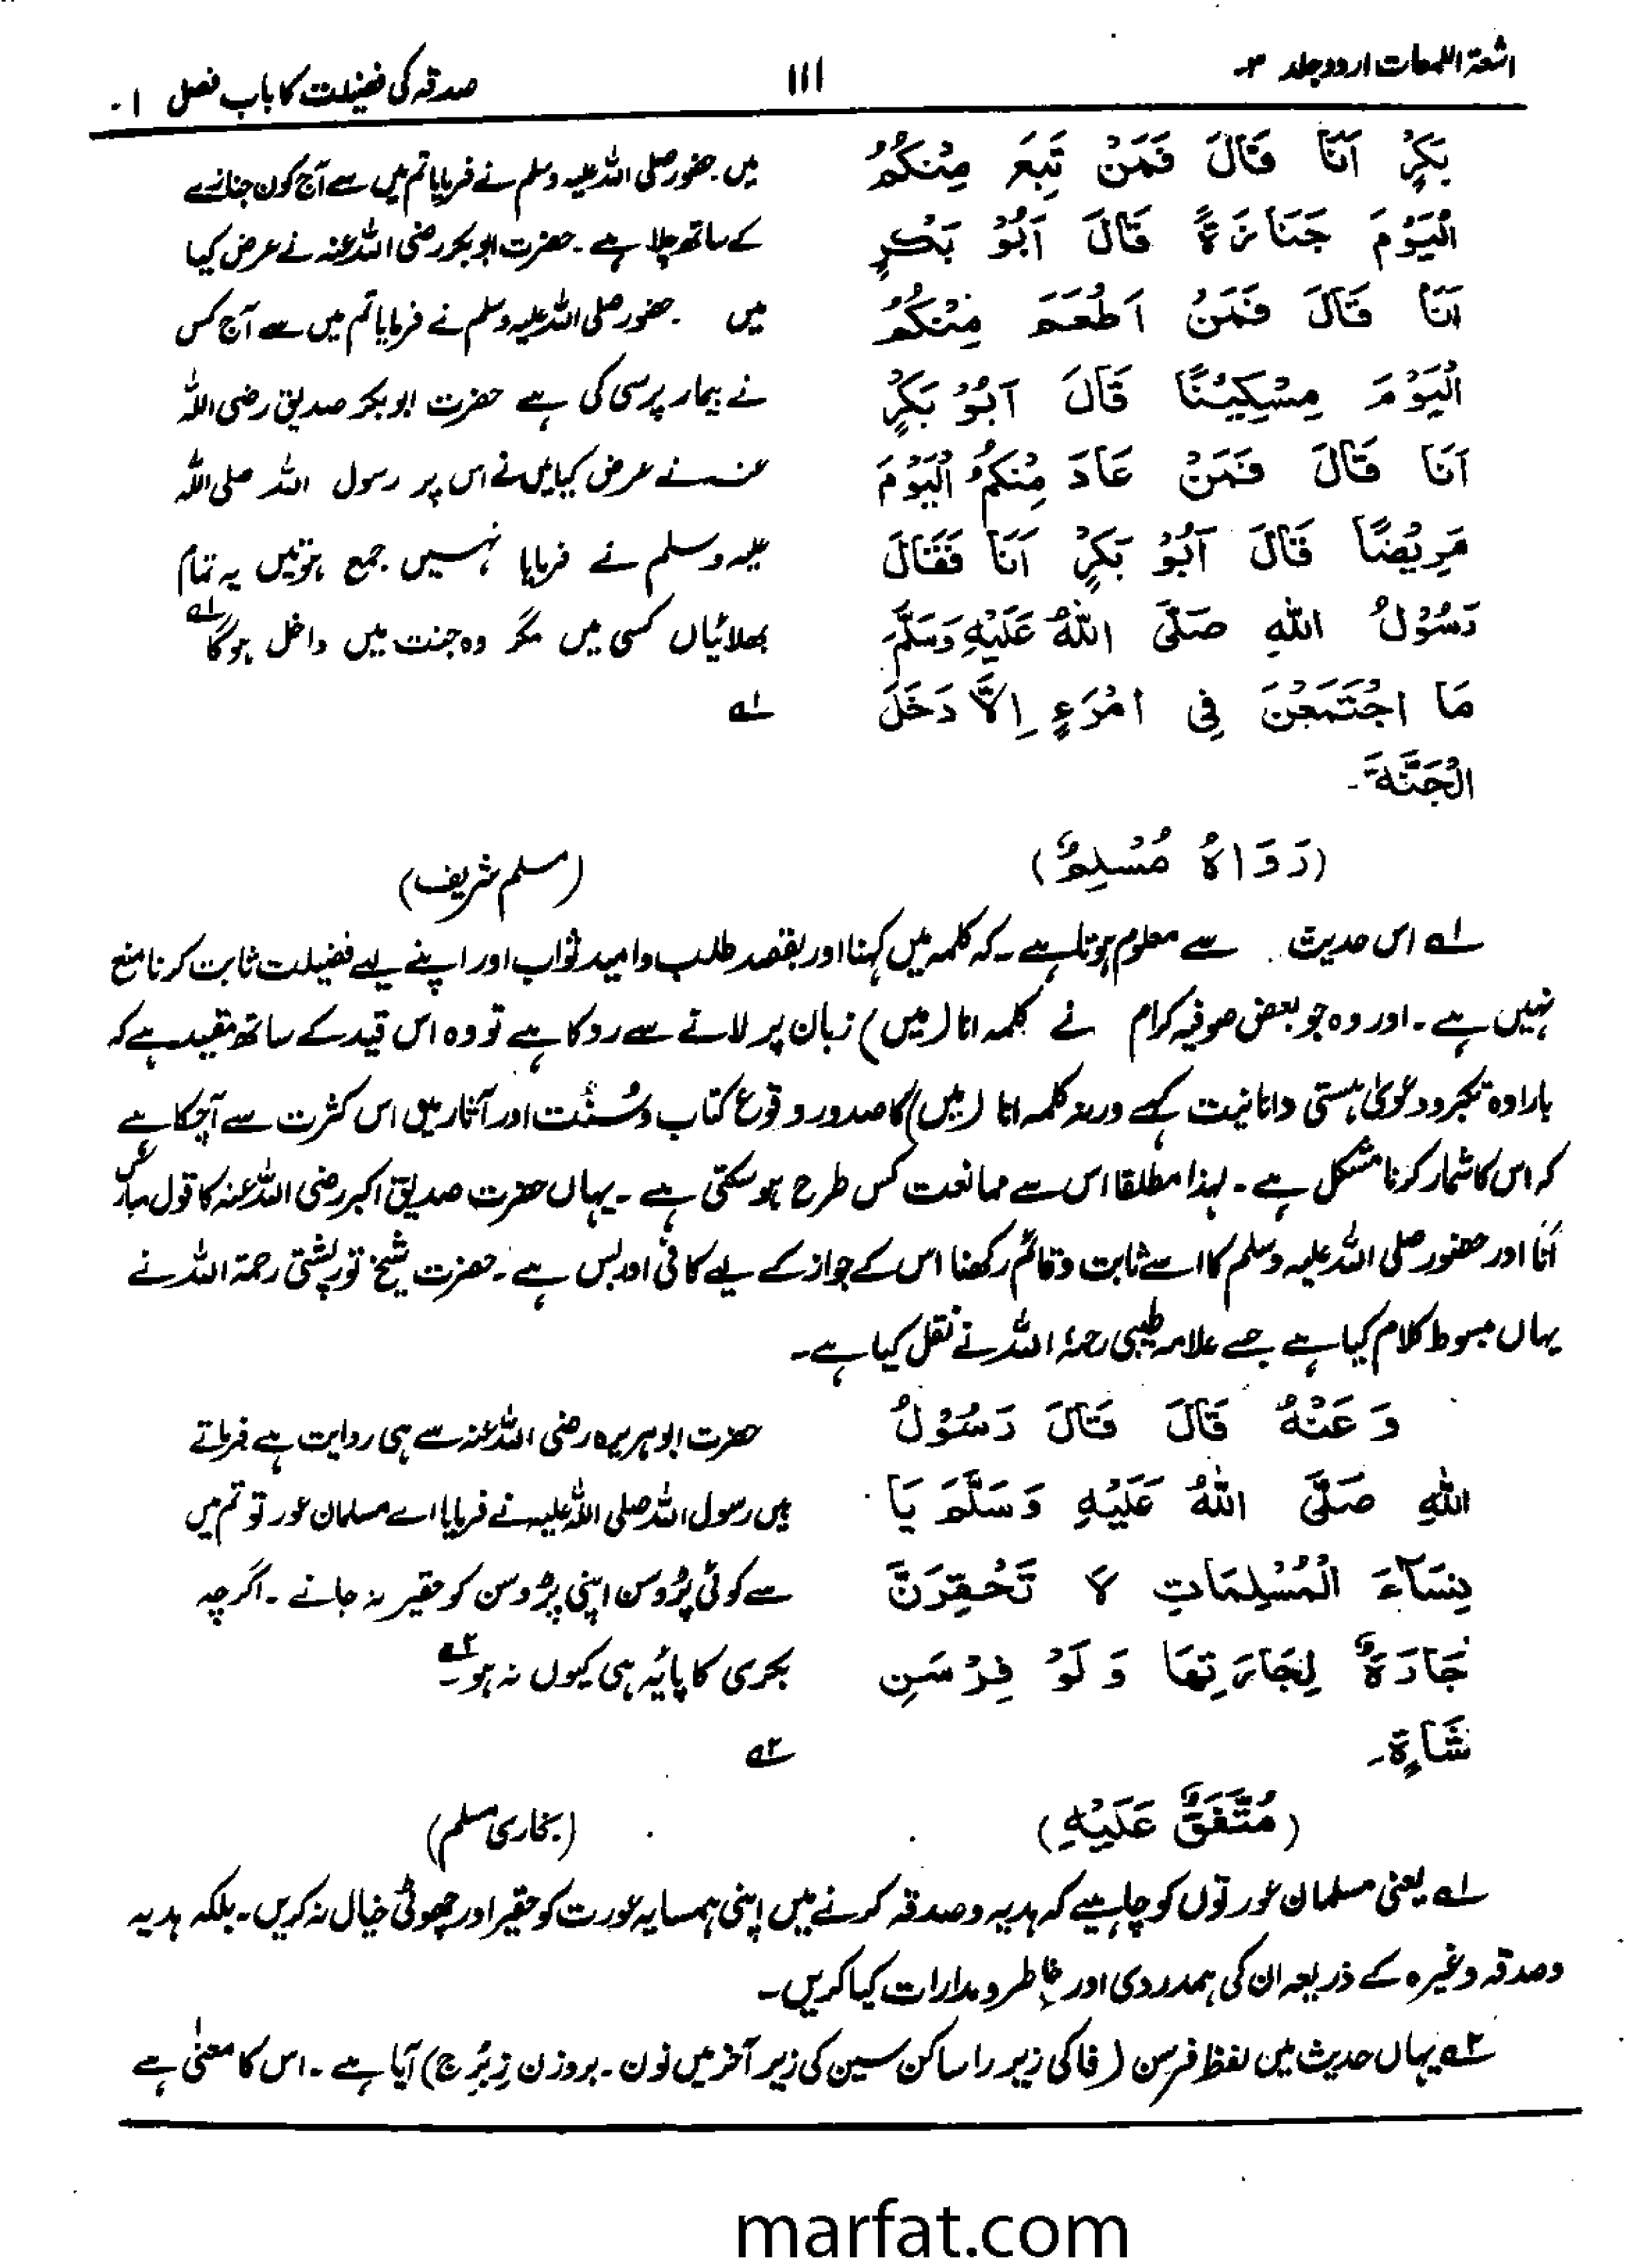 اشعۃ اللمعات اردو جلد ۳۔
۱۱۱
صدقہ کی فضیلت کا باب فصل ۱۔
بَكْرٍ اَنَا قَالَ فَمَنْ تَبِعَ مِنْكُمُ
الْيَوْمَ جَنَازَةً قَالَ اَبُوْ بَكْرٍ
اَنَا قَالَ فَمَنْ اَطْعَمَ مِنْكُمُ
الْيَوْمَ مِسْكِيْنًا قَالَ اَبُوْ بَكْرٍ
اَنَا قَالَ فَمَنْ عَادَ مِنْكُمُ الْيَوْمَ
مَرِيْضًا قَالَ اَبُوْ بَكْرٍ اَنَا فَقَالَ
رَسُوْلُ اللهِ صَلَّى اللهُ عَلَيْهِ وَسَلَّمَ
مَا اجْتَمَعْنَ فِى امْرَءٍ اِلَّا دَخَلَ
الْجَنَّةَ۔
(رَوَاهُ مُسْلِمٌ)
میں۔ حضور صلی اللہ علیہ وسلم نے فرمایا تم میں سے آج کون جنازے
کے ساتھ چلا ہے۔ حضرت ابوبکر رضی اللہ عنہ نے عرض کیا
میں ۔ حضور صلی اللہ علیہ وسلم نے فرمایا تم میں سے آج کس
نے بیمار پرسی کی ہے حضرت ابوبکر صدیق رضی اللہ
عنہ نے عرض کیا میں نے اس پر رسول اللہ صلی اللہ
علیہ وسلم نے فرمایا نہیں جمع ہوتیں یہ تمام
بھلائیاں کسی میں مگر وہ جنت میں داخل ہوگا ۱ے
۱ے
(مسلم شریف)
۱ے اس حدیث سے معلوم ہوتا ہے۔ کہ کلمہ میں کہنا اور بقصد طلب و امید ثواب اور اپنے لیے فضیلت ثابت کرنا منع
نہیں ہے۔ اور وہ جو بعض صوفیہ کرام نے کلمہ انا (میں) زبان پر لانے سے روکا ہے تو وہ اس قید کے ساتھ مقید ہے کہ
بارادہ تکبر و دعویٰ ہستی و انانیت کہے ورنہ کلمہ انا (میں) کا صدور و وقوع کتاب و سُنّت اور آثار میں اس کثرت سے آچکا ہے
کہ اس کا شمار کرنا مشکل ہے۔ لہذا مطلقا اس سے ممانعت کس طرح ہو سکتی ہے۔ یہاں حضرت صدیق اکبر رضی اللہ عنہ کا قول مبارک
اَنَا اور حضور صلی اللہ علیہ وسلم کا اسے ثابت و قائم رکھنا اس کے جواز کے لیے کافی اور بس ہے۔ حضرت شیخ تورپشتی رحمۃ اللہ نے
یہاں مبسوط کلام کیا ہے جسے علامہ طیبی رحمۃ اللہ نے نقل کیا ہے۔
وَ عَنْهُ قَالَ قَالَ رَسُوْلُ
اللهِ صَلَّى اللهُ عَلَيْهِ وَسَلَّمَ يَا
نِسَآءَ الْمُسْلِمَاتِ لَا تَحْقِرَنَّ
جَارَةٌ لِجَارَتِهَا وَ لَوْ فِرْسَنِ
شَاةٍ۔
(مُتَّفَقٌ عَلَيْهِ)
حضرت ابوہریرہ رضی اللہ عنہ سے ہی روایت ہے فرماتے
ہیں رسول اللہ صلی اللہ علیہ نے فرمایا اے مسلمان عورتو تم میں
سے کوئی پڑوسن اپنی پڑوسن کو حقیر نہ جانے۔ اگرچہ
بکری کا پائیہ ہی کیوں نہ ہو۔ ۲ے
۲ے
(بخاری مسلم)
۱ے یعنی مسلمان عورتوں کو چاہیے کہ ہدیہ و صدقہ کرنے میں اپنی ہمسایہ عورت کو حقیر اور چھوٹی خیال نہ کریں۔ بلکہ ہدیہ
و صدقہ وغیرہ کے ذریعہ ان کی ہمدردی اور خاطر و مدارات کیا کریں۔
۲ے یہاں حدیث میں لفظ فرسن (فا کی زیر را ساکن سین کی زیر آخر میں نون۔ بروزن زِبْرِج) آیا ہے۔ اس کا معنیٰ ہے
marfat.com